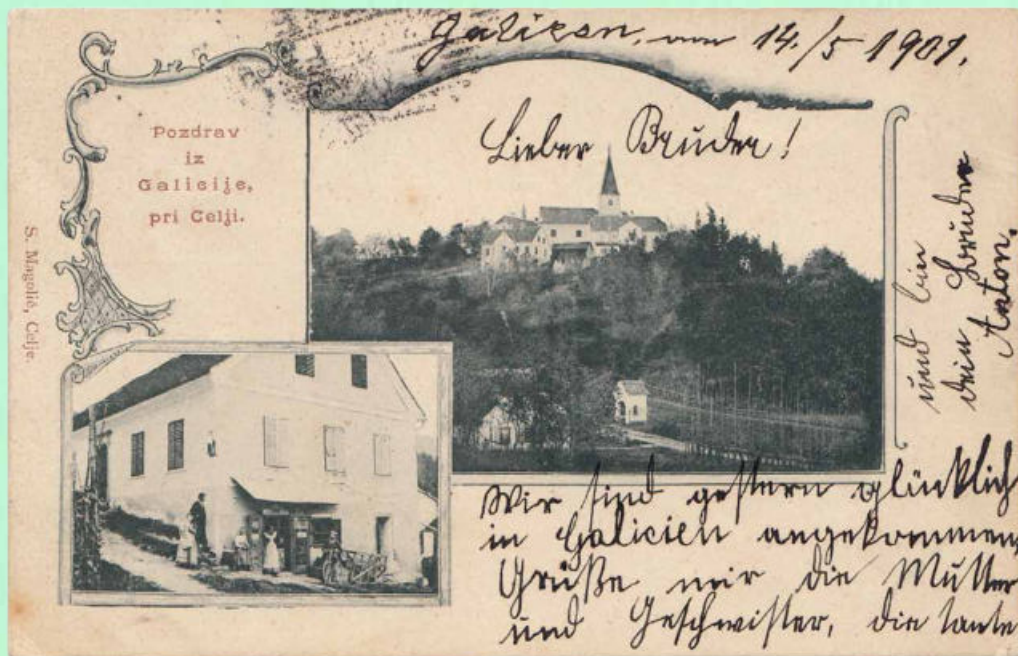 Galizen, am 14./5 1901.
Lieber Bruder!
Pozdrav
iz
Galicije,
pri Celji.
S. Magolič, Celje.
Wir sind gestern glücklich
in Galicien angekommen,
Grüße mir die Mutter
und Geschwister, die tante
und bin
dein Bruder
Anton.